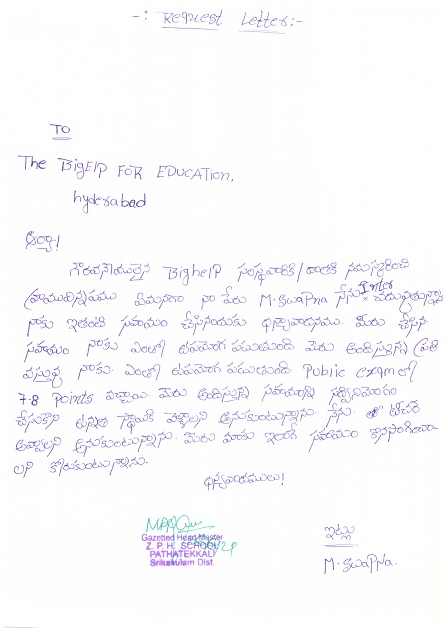 -: Request Letter:-
To
The BigElP FOR EDUCATION,
hyderabad
ఆర్యా!
గౌరవనీయులైన BighelP సంస్థవారికి/దాతకి నమస్కరించి
వ్రాయు విన్నపము ఏమనగా నా పేరు M.swaPna నేను Inter చదువుతున్నాను
నాకు ఇంతటి సహాయం చేసినందుకు ధన్యవాదములు. మీరు చేసిన
సహాయం నాకు ఎంతో ఉపయోగ పడుతుంది మీరు అందిస్తున్న ప్రతి
వస్తువు నాకు ఎంతో ఉపయోగ పడుతుంది. Public exam లో
7.8 Points వచ్చాయి. మీరు అందిస్తున్న సహాయాన్ని సద్వినియోగం
చేసుకొని ఉన్నత స్థాయికి వెళ్ళాలని అనుకుంటున్నాను. నేను టీచర్
అవ్వాలని అనుకుంటున్నాను. మీరు మాకు ఇలాంటి సహాయం కొనసాగించా
లని కోరుకుంటున్నాను.
ధన్యవాదములు!
ఇట్లు
M.swaPna.
Gazetted Head Master
Z. P. H. SCHOOL
PATHATEKKALI
Srikakulam Dist.